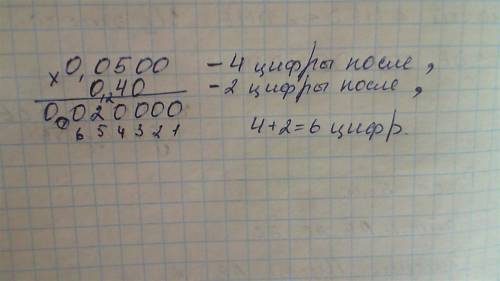 0,0500 – 4 цифры после ,
× 0,40 – 2 цифры после ,
0,020000
6 5 4 3 2 1
4+2=6 цифр.